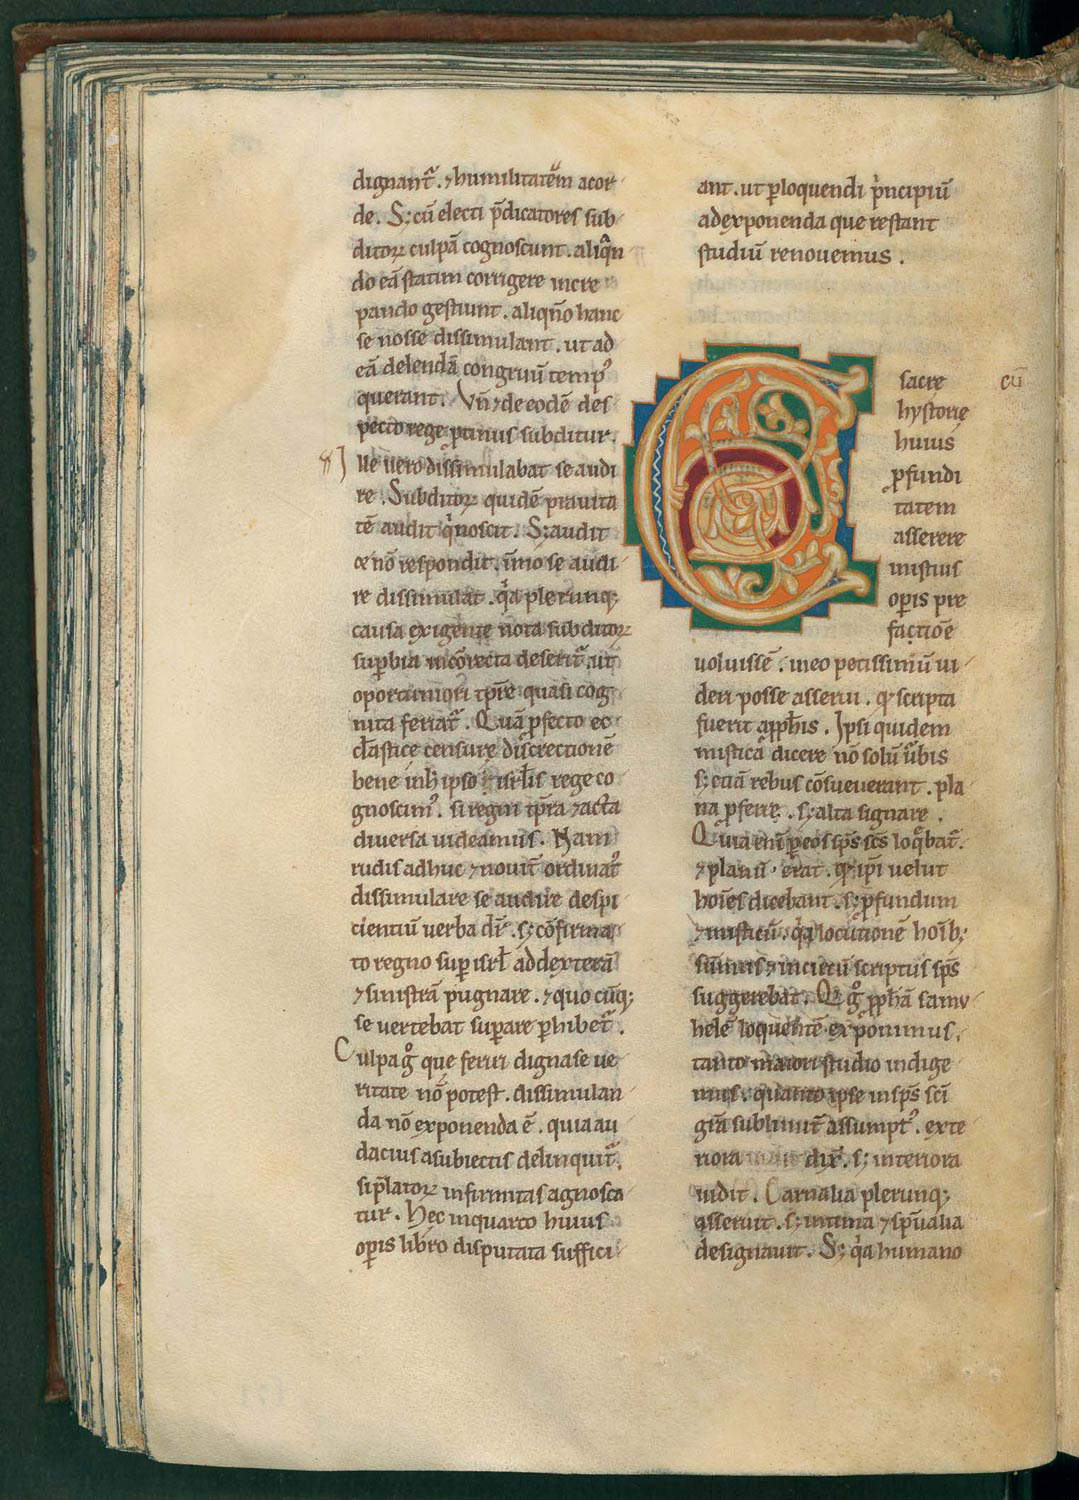 dignant᷑. ⁊ humilitatē in acor
de. S; cū electi p̄dicatores sub
ditoꝝ culpā cognoscunt. aliqn̄
do eā statim corrigere incre
pando gestiunt. aliqn̄o hanc
se nosse dissimulant. ut ad
eā delendā congruū temp᷒
querant. Vn̄ ⁊ de eodē des
pecto rege ꝓtinus subditur.
Ille uero dissimulabat se audi
re. Subditoꝝ quidē prauita
tē audit qͥ noscit. S; audit
⁊ nō respondit. īmo se audi
re dissimulat. q̇a plerunq;
causa exigente nota subditoꝝ
suꝑbia incōrecta deserit᷑. ut
oportuniori tp̄re quasi cog
nita feriat᷑. Quā ꝓfecto ec
cl̄astice censurę discrectionē
bene in h̄ ipso isrl̄is rege co
gnoscim᷒. si regni tp̄ra ⁊ acta
diuersa uideamus. Nam
rudis adhuc ⁊ nouit᷑ ordinat᷒
dissimulare se audire despi
cientiū uerba dr̄. s; cōfirma
to regno suꝑ isrl̄ ad dexterā
⁊ sinistrā pugnare. ⁊ quo cūq;
se uertebat suꝑare ꝑhibet᷑.
Culpa gͦ que feriri digna seue
ritate nō potest. dissimulan
da nō exponenda ē. quia au
dacius a subiectis delinquit᷑.
si p̄latoꝝ infirmitas agnosca
tur. Hec in quarto huius
oꝑis libro disputata suffici
ant. ut ꝑ loquendi p̍ncipiū
ad exponenda que restant
studiū renouemus.
cū
C sacre
hystorie
huius
ꝓfundi
tatem
asserere
in istius
oꝑis pre
factiōe
uoluissē. in eo potissimū ui
deri posse asserui. qͥ scripta
fuerit a ꝓph̄is. Ipsi quidem
misticā dicere nō solū u̅bis
s; etiā rebus cōsueuerant. pla
na ꝓferre. s; alta signare.
Quia eni̅ ꝑ eos sp̄s sc̄s loq̄bat᷑.
⁊ planū erat. qͥ ip̄i uelut
hoīes dicebant. s; ꝓfundum
⁊ misticū. q̇a locutionē hoīb;
sūmis ⁊ incietū scriptus sp̄s
suggerebat. Qͥ gͦ ꝓph̄ā samu
helē loquentē exponimus.
tanto maiori studio indige
mus. quanto ipse in sp̄s sc̄i
gr̄a sublimit᷑ assumpt᷒. exte
riora dix̄. s; interiora
uidit. Carnalia plerunq;
asseruit. s; intima ⁊ sp̄ualia
designauit. S; q̇a humano